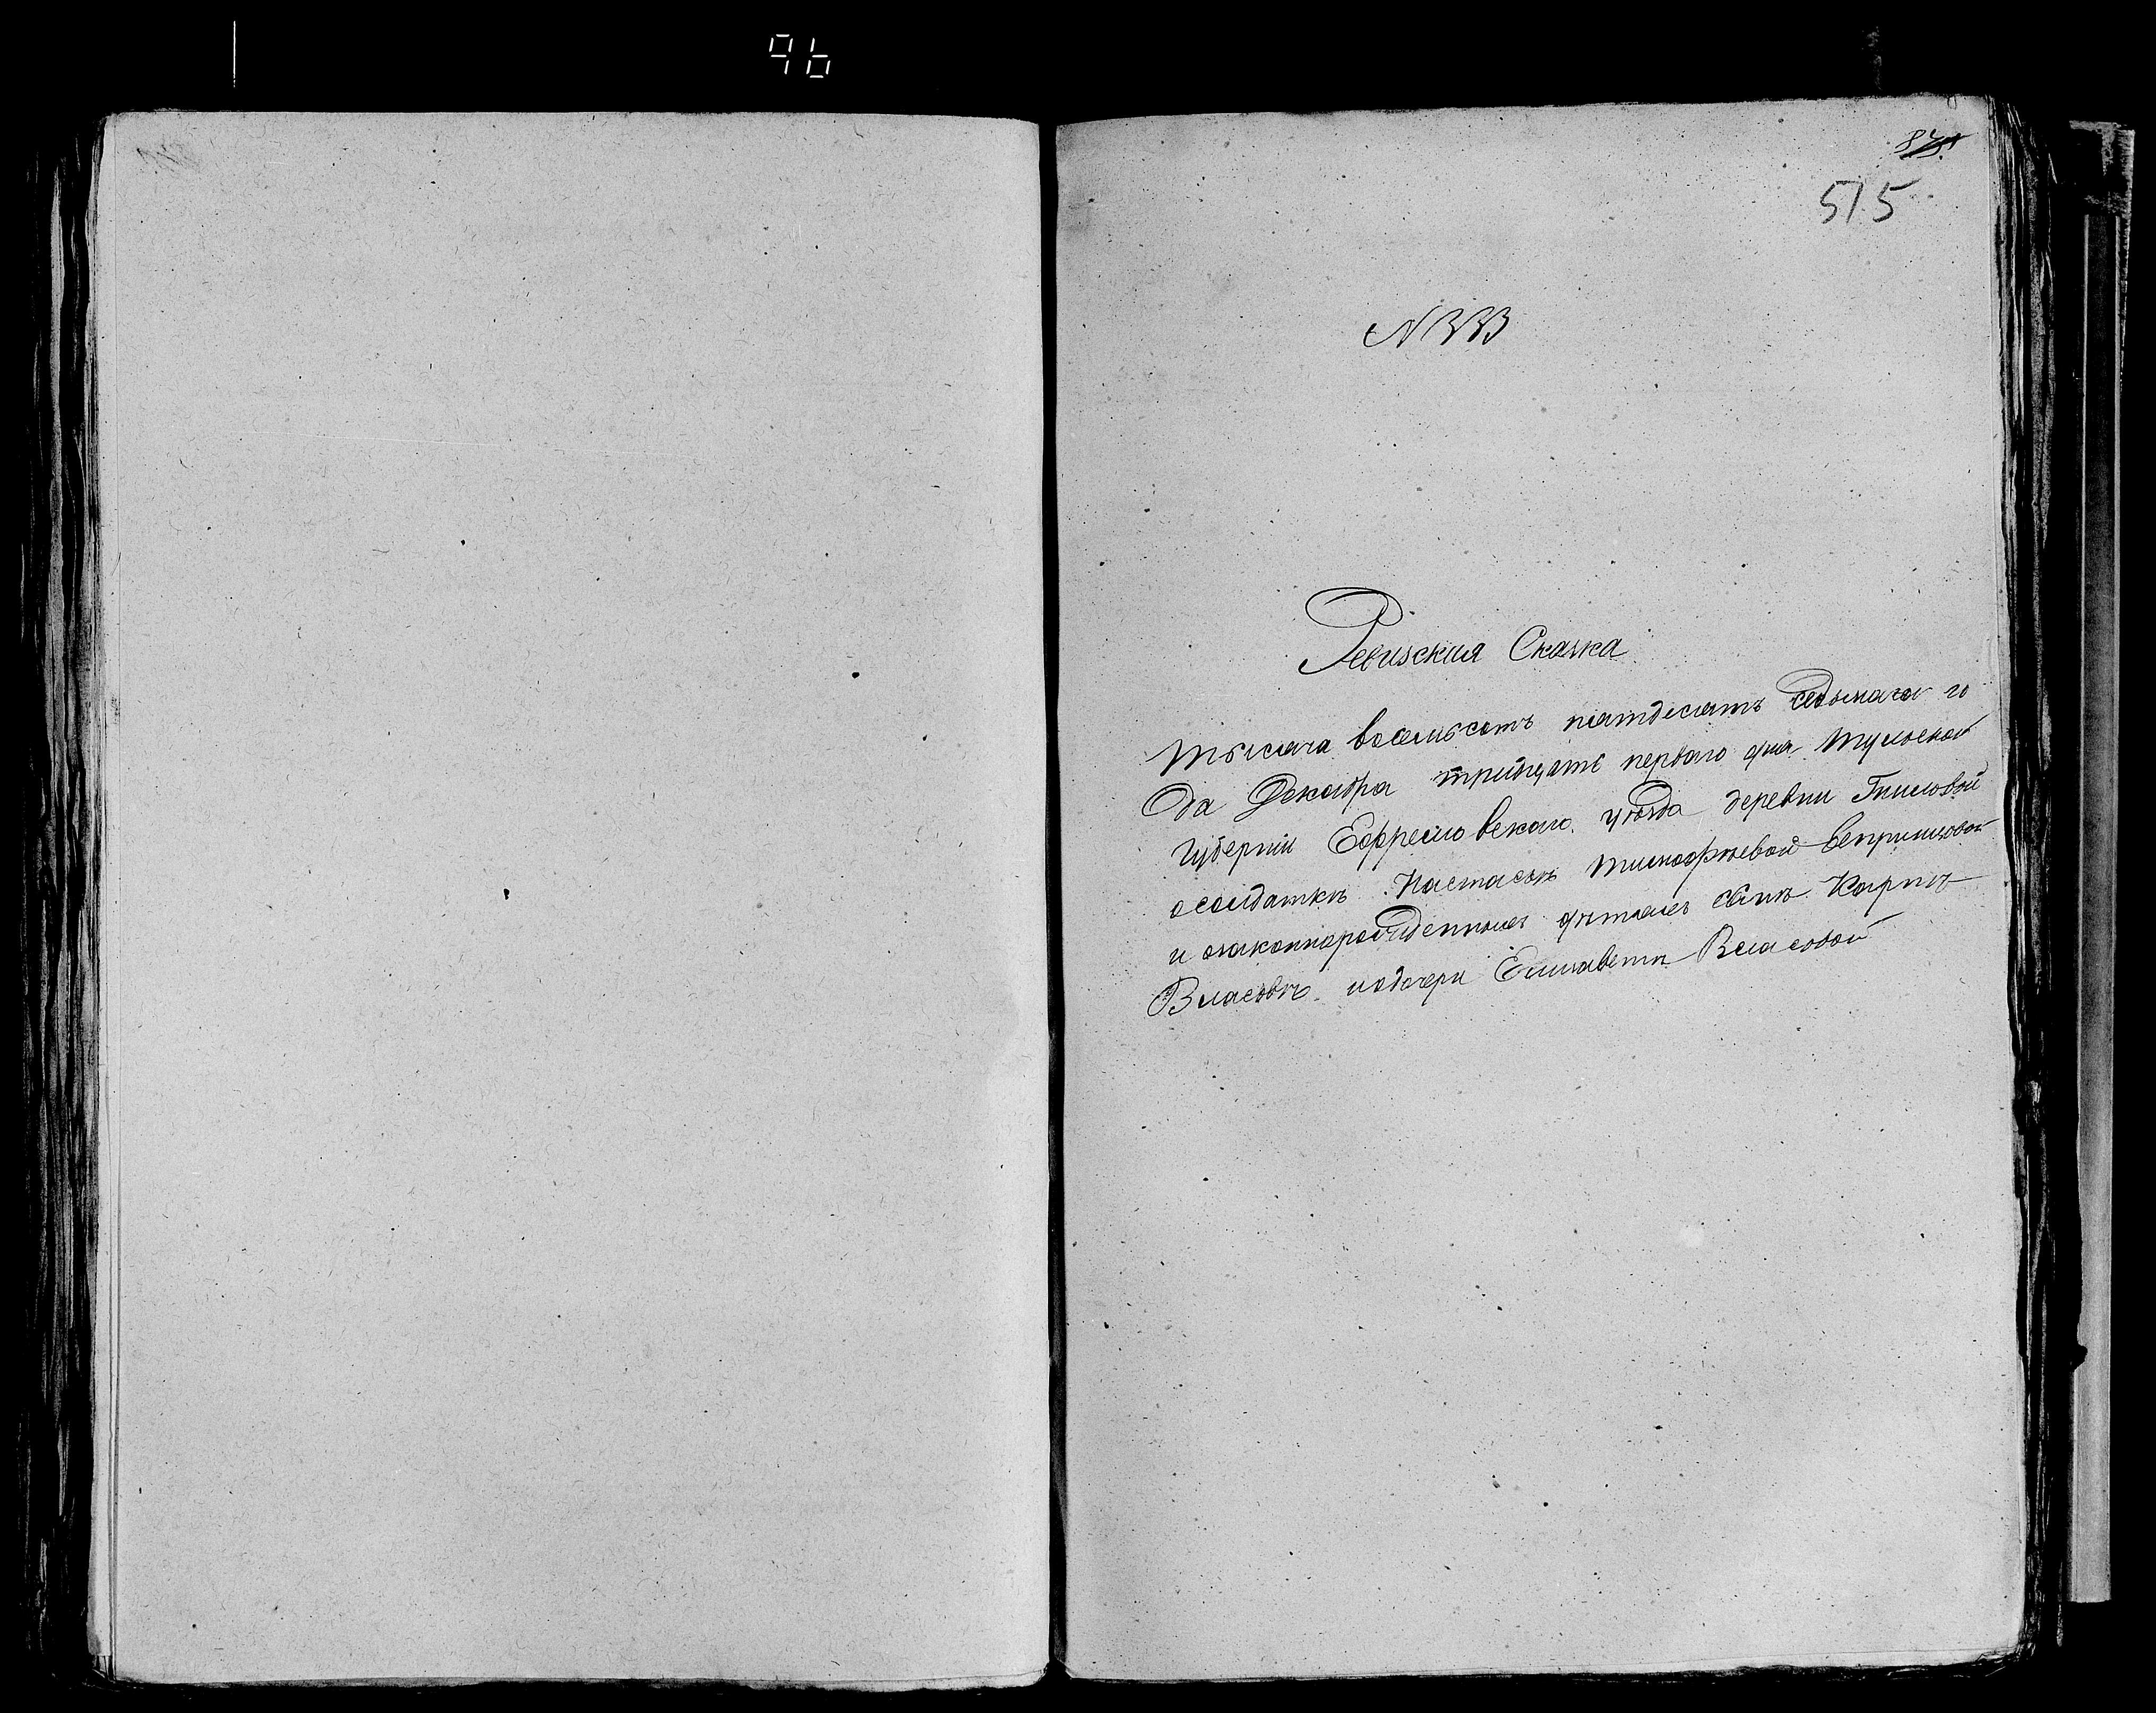 96
515
N 333
Ревизския Сказка
тысяча восемьсотъ пятдесятъ седьмаго го
да Декабря тритцать перваго дня Тульской
губерніи Ефремовскаго уѣзда деревни Гниловой
осолдаткѣ Настасьѣ Тимофѣевой Веприцовой
и озаконнорожденныхъ дѣтяхъ сынѣ Карпѣ
Власовѣ идочери Елизаветѣ Власовой